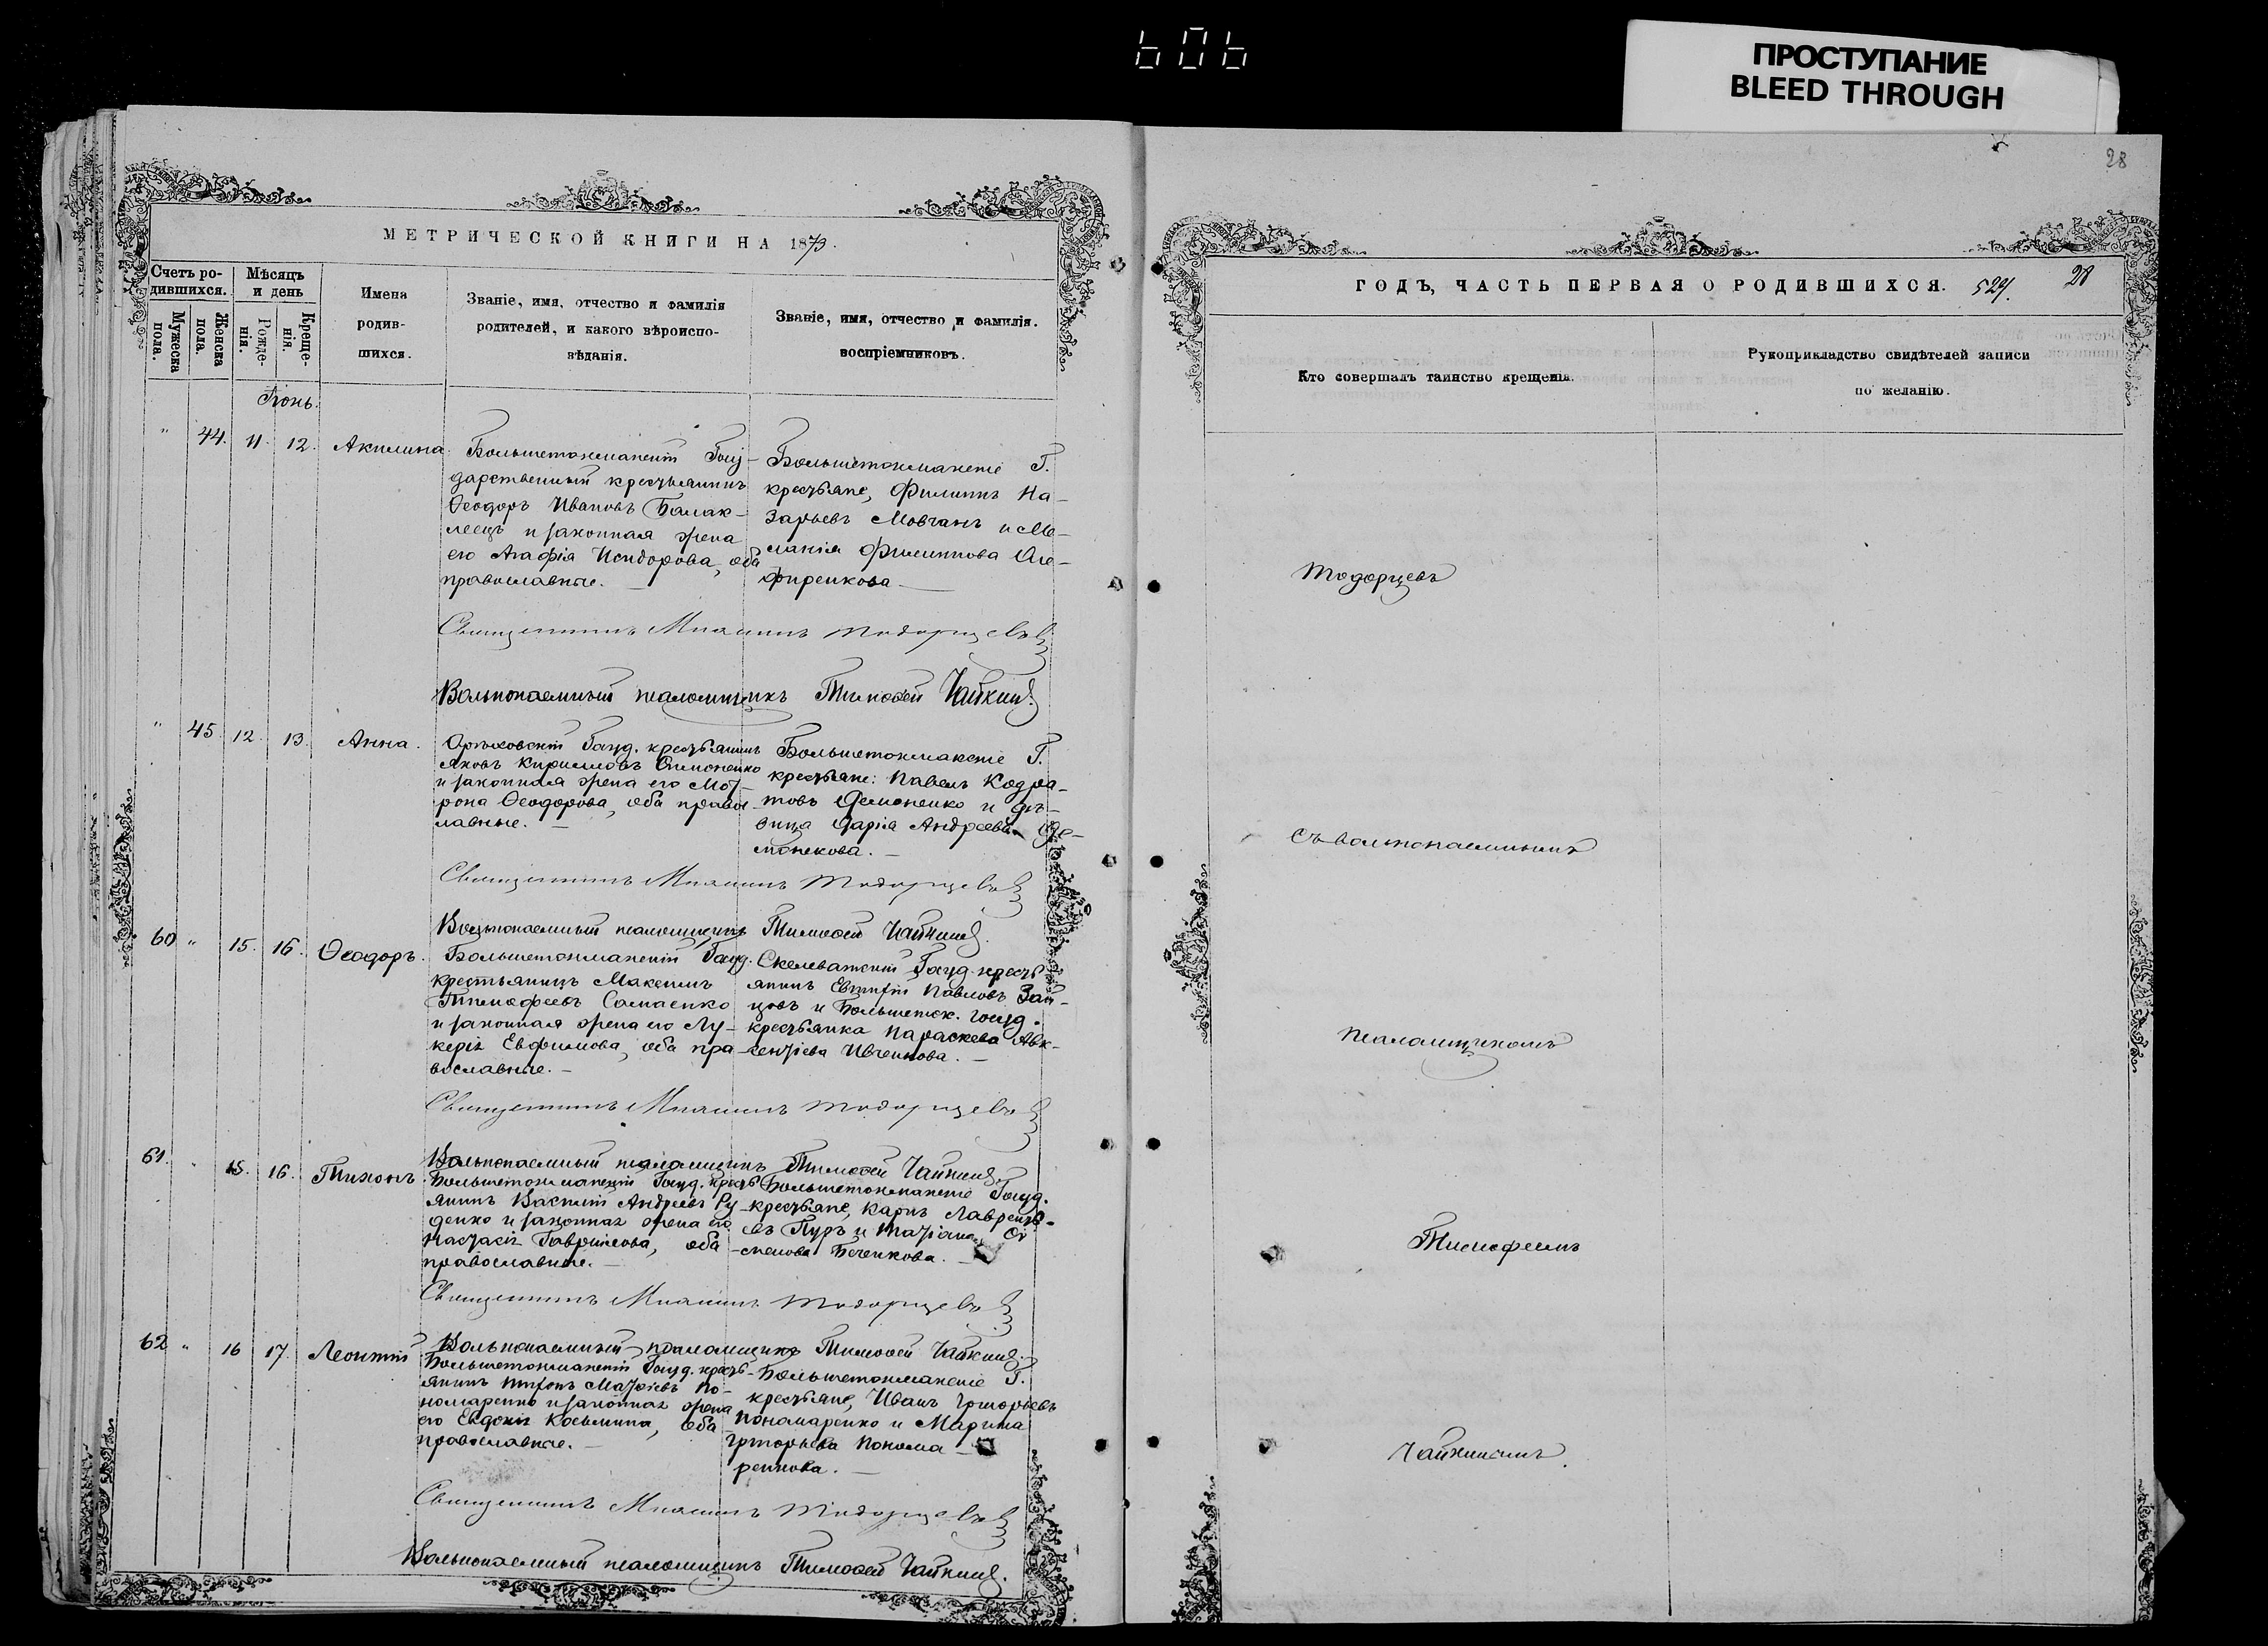 606
ПРОСТУПАНИЕ
BLEED THROUGH
28
МЕТРИЧЕСКОЙ КНИГИ НА 1873.
Счетъ ро-
дившихся.
Мѣсяцъ
и день
Мужеска
пола.
Женска
пола.
Рожде-
нія.
Креще-
нія.
Имена
родив-
шихся.
Званіе, имя, отчество и фамилія
родителей, и какого вѣроиспо-
вѣданія.
Званіе, имя, отчество и фамилія.
воспріемниковъ.
Іюнь.
" 44. 11. 12. Акилина.
Большетокмакскій Госу-
дарственный крестьянинъ
Ѳеодоръ Ивановъ Балак-
леецъ и законная жена
его Агафія Исидорова, оба
православные.
Большетокмакскіе Г.
крестьяне, Филиппъ На-
зарьевъ Мовчанъ и Ме-
ланія Филиппова
Священникъ Тодорцевъ
Вольнонаемный псаломщикъ Тимоѳей Чайкинъ.
" 45. 12. 13. Анна.
Орѣховскій Госуд. крестьянинъ
Яковъ Кирилловъ
и законная жена его Мот-
рона Ѳеодорова, оба правос-
лавные.
Большетокмакскіе Г.
крестьяне: Павелъ Кодра-
товъ и дѣ-
вица Дарія Андреева
Священникъ Тодорцевъ
Вольнонаемный псаломщикъ Тимоѳей Чайкинъ.
60 " 15. 16. Ѳеодоръ.
Большетокмакскій Госуд.
крестьянинъ Максимъ
Тимофеевъ
и законная жена его Лу-
керія Евфимова, оба пра-
вославные.
Скелеватскій Госуд. кресть-
янинъ Евтифій Павловъ Зай-
цовъ и Большеток. госуд.
крестьянка Параскева Авк-
сентіева Ивченкова.
Священникъ Тодорцевъ
Вольнонаемный псаломщикъ Тимоѳей Чайкинъ.
61. " 15. 16. Тихонъ.
Большетокмакскій Госуд. кресть-
янинъ Василій Андреевъ Ру-
денко и законная жена его
Настасія Гавриилова, оба
православные.
Большетокмакскіе Госуд.
крестьяне, Карпъ Лаврентъ-
евъ Пуръ и Татіана
Священникъ Тодорцевъ
Вольнонаемный псаломщикъ Тимоѳей Чайкинъ.
62 " 16 17. Леонтій
Большетокмакскій Госуд. кресть-
янинъ Матѳіевъ По-
номаренко и законная жена
его Евдокія Косьмина, оба
православные.
Большетокмакскіе Г.
крестьяне, Иванъ Григорьевъ
Пономаренко и Марина
Григорьева Понома-
ренкова.
Священникъ Тодорцевъ
Вольнонаемный псаломщикъ Тимоѳей Чайкинъ.
ГОДЪ, ЧАСТЬ ПЕРВАЯ О РОДИВШИХСЯ. 529. 28
Кто совершалъ таинство крещенія.
Рукоприкладство свидѣтелей записи
по желанію.
Тодорцевъ
съ вольнонаемнымъ
псаломщикомъ
Тимофеемъ
Чайкинымъ.